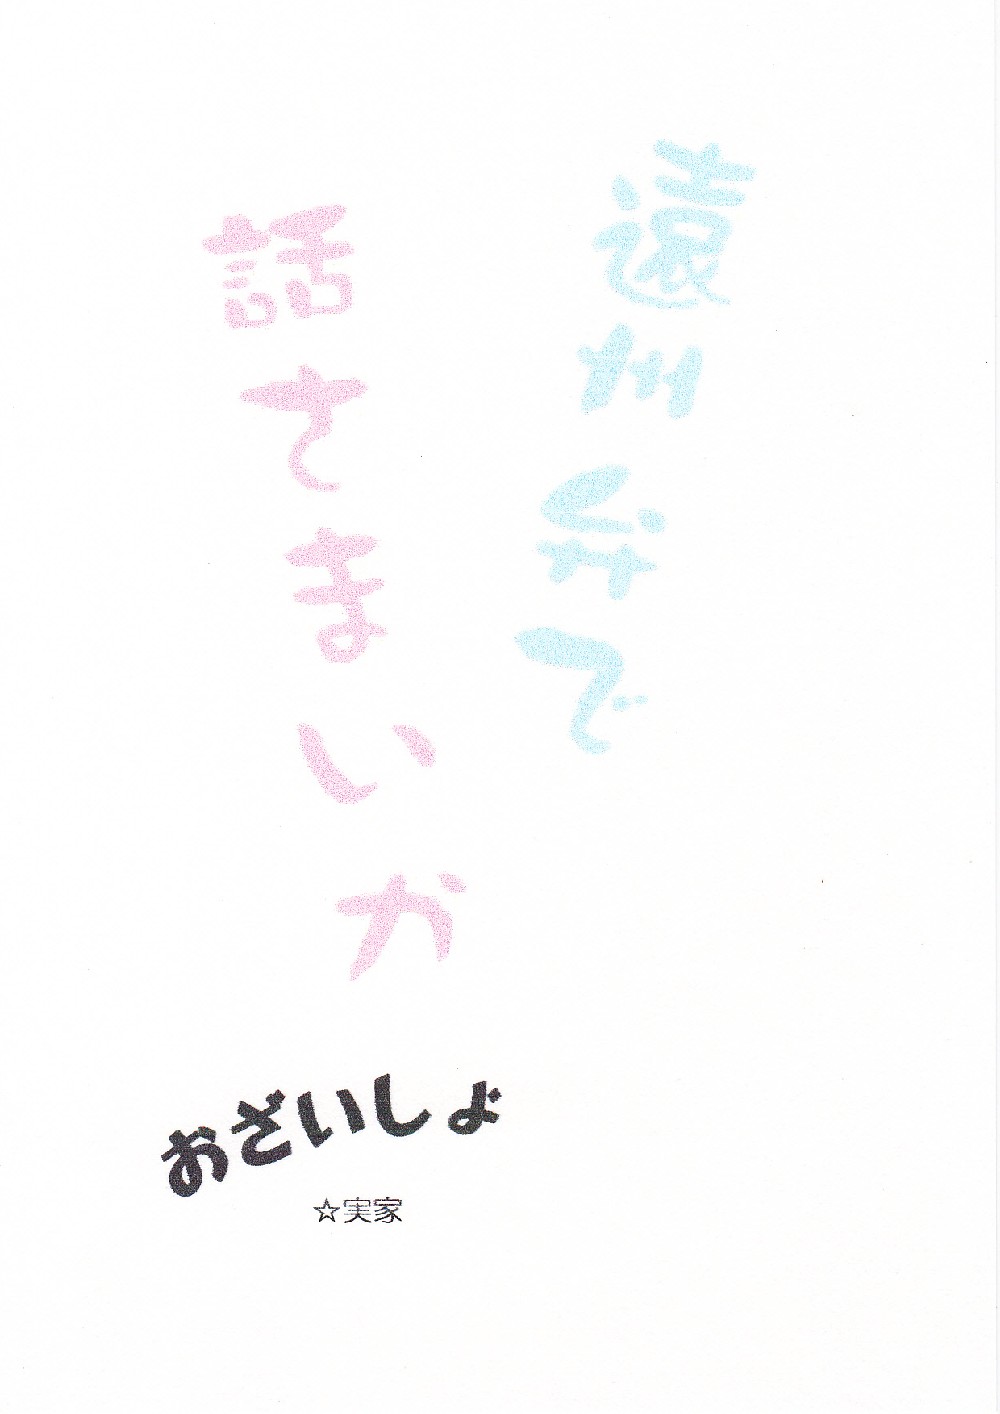 遠州弁で
話てまいか
おざいしょ
☆実家